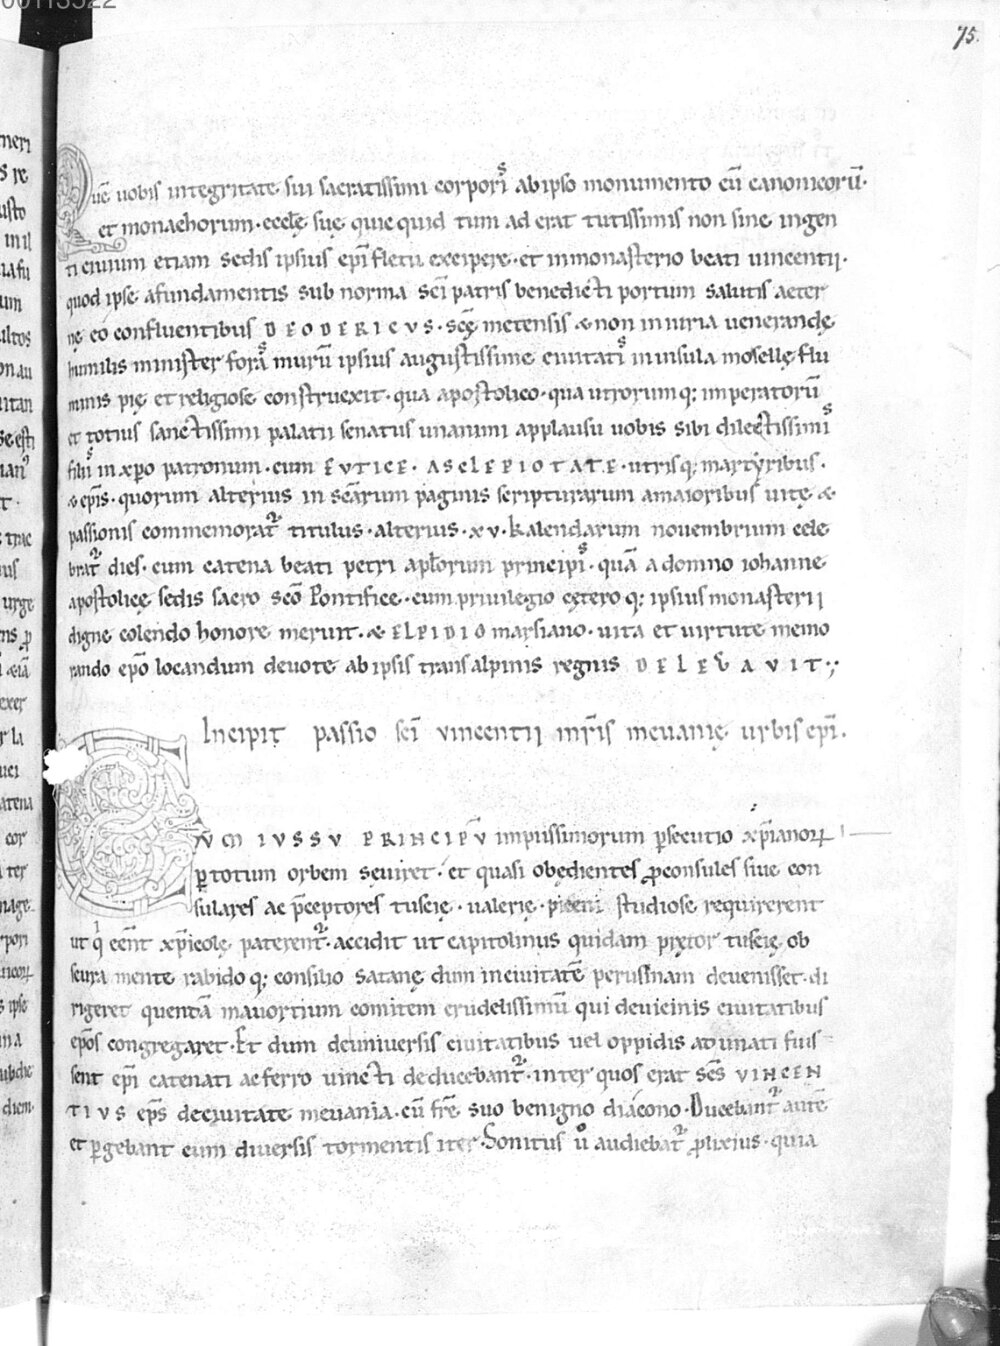 75.
Quę uobis integritate sui sacratissimi corporis ab ipso monumento cū canonicorū·
et monachorum· ecclę suę quicquid tum ad erat tutissimis non sine ingen
ti ciuium etiam sedis ipsius epi fletu excipere· et in monasterio beati uincentii·
quod ipse afundamentis sub norma sci patris benedicti portum salutis aeter
nę eo confluentibus DEODERICVS· scę metensis & non iniuria uenerandę
humilis minister foras murū ipsius augustissime ciuitatis in insula mosellę flu
minis pię et religiose construexit· qua apostolico· qua utrorumq; imperatorū
et totius sanctissimi palatii senatus unanimi applausu uobis sibi dilectissimis
filiis in xpo patronum· cum EVTICE· ASCLEPIOTATE· utrisq; martyribus·
& epis· quorum alterius in scarum paginis scripturarum amaioribus uitę &
passionis commemorat titulus· alterius· xv· kalendarum nouembrium cele
brat dies· cum catena beati petri aplorum principis· quā a domno iohanne
apostolicę sedis sacro scō Pontifice· cum priuilegio cętero q; ipsius monasterii
digne colendo honore meruit· & ELPIDIO marsiano· uita et uirtute memo
rando epo locandum deuote ab ipsis transalpinis regnis DELEVAVIT·;
Incipit passio sci vincentii mris meuanię urbis epi.
CVM IVSSV PRINCIPV impiissimorum psecutio xpianorꝝ
ꝑ totum orbem sęuiret· et quasi obędientes ꝓconsules siue con
sulares ac pceptores tuscię· ualerię· piceni studiose requirerent
ut qi eent xpicolę paterent· accidit ut capitolinus quidam prętor tuscię ob
scura mente rabido q; consilio satanę dum inciuitatē perusinam deuenisset· di
rigeret quendā mauortium comitem crudelissimū qui deuicinis ciuitatibus
epos congregaret· Et dum deuniuersis ciuitatibus uel oppidis adunati fuis
sent epi catenati ac ferro uincti deducebant· inter quos erat scs VINCEN
TIVS eps decuitate meuania· cū fre suo benigno diácono· Ducebant autē
et ꝑgebant cum diuersis tormentis iter· Sonitus uo audiebat ꝓlixius· quia